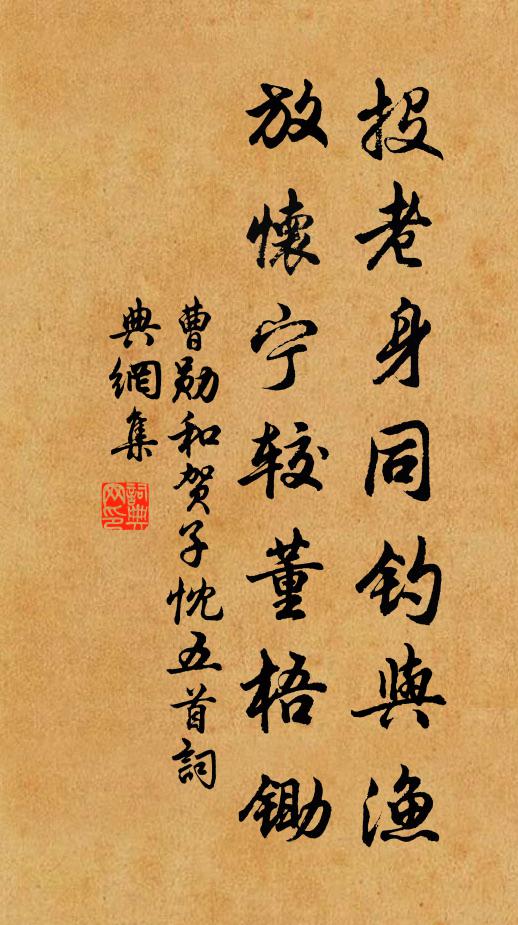 投老身同钓與渔
放懷宁较董梧锄
曹勛和贺子忱五首詞
典網集
詞典
网印